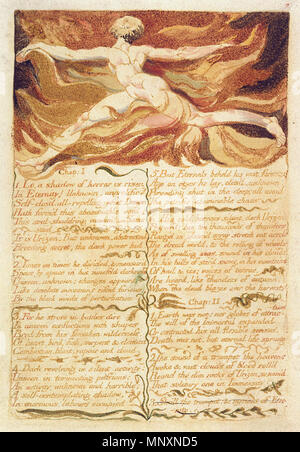 Chap: I
1. Lo, a shadow of horror is risen
In Eternity! Unknown, unprolific!
Self-closd, all-repelling: what Demon
Hath form'd this abominable void
This soul-shudd'ring vacuum? Some said
It is Urizen, But unknown, abstracted
Brooding secret, the dark power hid.
2. Times on times he divided, & measur'd
Space by space in his ninefold darkness
Unseen, unknown: changes appeard
In his desolate mountains rifted furious
By the black winds of perturbation
3. For he strove in battles dire
In unseen conflictions with shapes
Bred from his forsaken wilderness,
Of beast, bird, fish, serpent & element
Combustion, blast, vapour and cloud.
4. Dark revolving in silent activity:
Unseen in tormenting passions;
An activity unknown and horrible;
A self-contemplating shadow,
In enormous labours occupied
5. But Eternals beheld his vast forests
Age on ages he lay, clos'd, unknown
Brooding shut in the deep; all avoid
The petrific abominable chaos
6. His cold horrors silent, dark Urizen
Prepar'd: his ten thousands of thunders
Rang'd in gloom'd array stretch out across
The dread world, & the rolling of wheels
As of swelling seas, sound in his clouds
In his hills of stor'd snows, in his mountains
Of hail & ice; voices of terror,
Are heard, like thunders of autumn,
When the cloud blazes over the harvests
Chap: II
1. Earth was not: nor globes of attraction
The will of the Immortal expanded
Or contracted his all flexible senses.
Death was not, but eternal life sprung
2. The sound of a trumpet the heavens
Awoke & vast clouds of blood roll'd
Round the dim rocks of Urizen, so nam'd
That solitary one in Immensity
3. Shrill the trumpet: & myriads of Eter-
alamy
Image ID: MNXND5
www.alamy.com